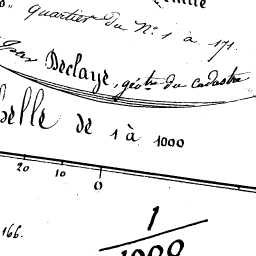 quartier du N° 1 à 171.
Par Declaye, géotre du cadastre
helle de 1 à 1000
20 10 0
166.
1
1000